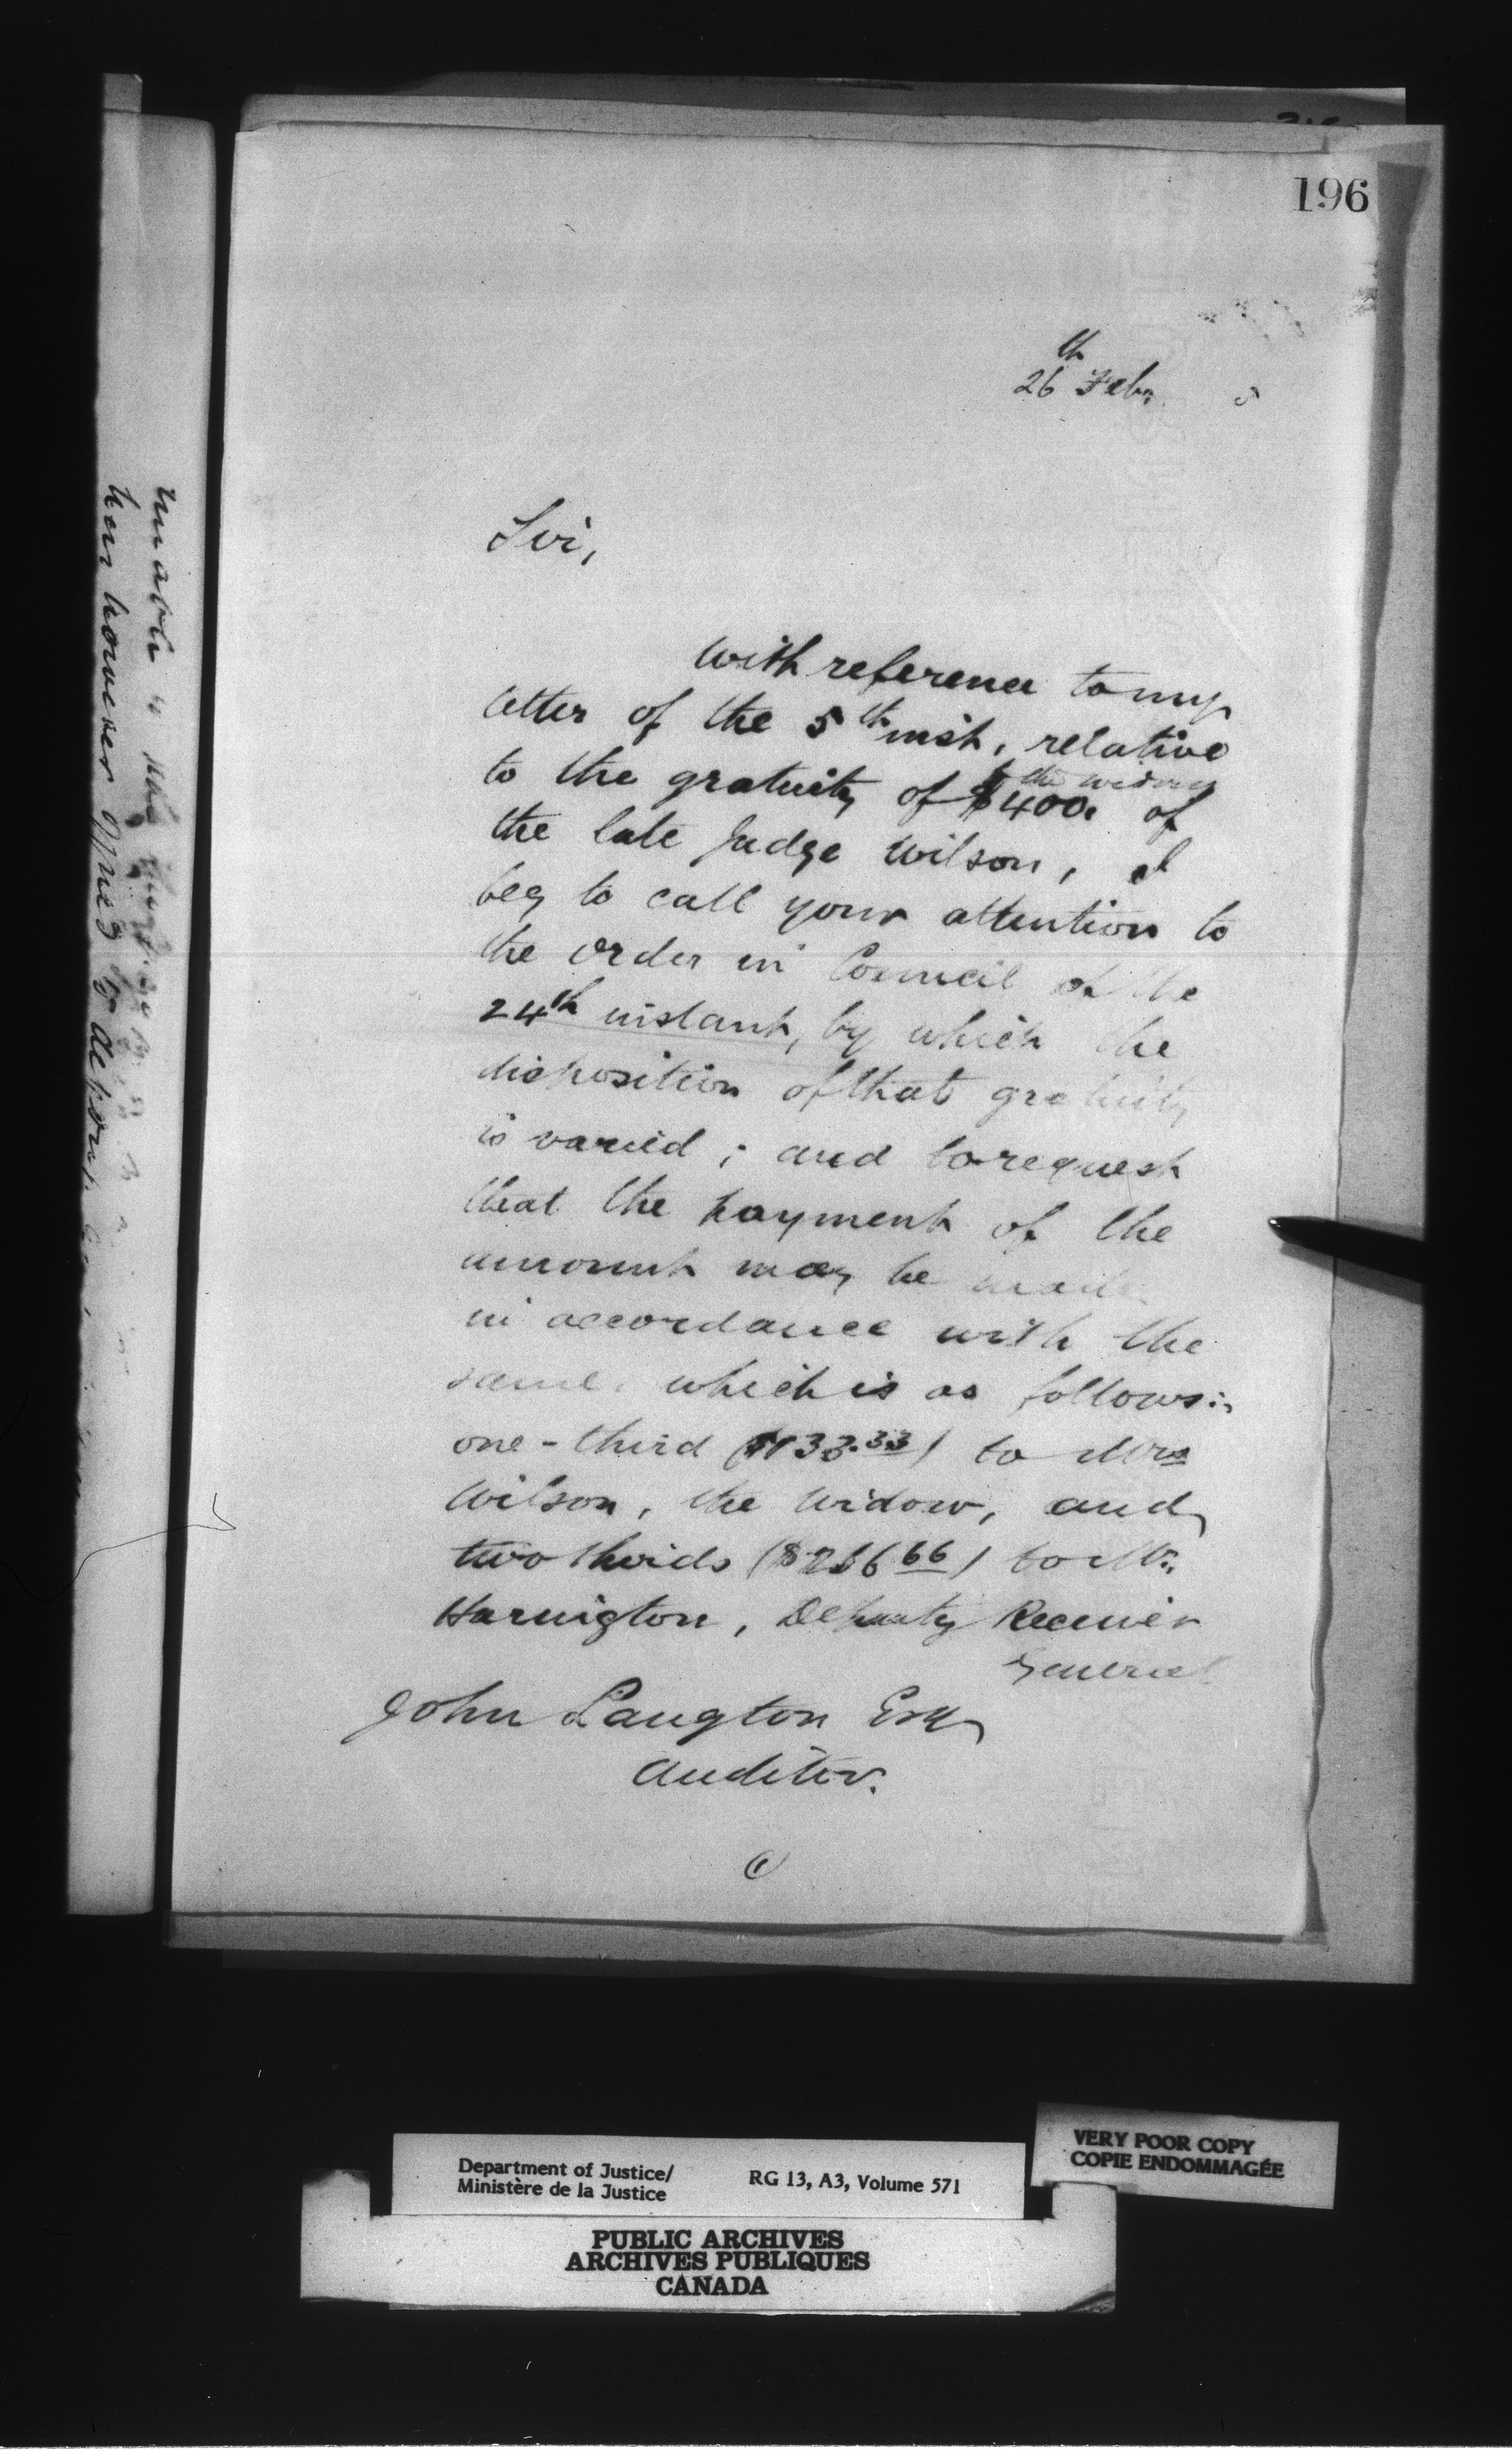 196
26th Feb. 5
Sir,
With reference to my
letter of the 5th inst, relative
the widow
to the gratuity of $400. of
the late Judge Wilson, I
beg to call your attention to
the order in Council of the
24th instant, by which the
disposition of that gratuity
is varied; and to request
that the payment of the
amount may be made
in accordance with the
same, which is as follows:
one-third ($133.33) to Mrs
Wilson, the widow, and
two thirds ($266 66) to Mr.
Harrington, Deputy Receiver
General
John Langton Esq
Auditor.
unable to
her however
Department of Justice/
Ministère de la Justice
RG 13, A3, Volume 571
VERY POOR COPY
COPIE ENDOMMAGÉE
PUBLIC ARCHIVES
ARCHIVES PUBLIQUES
CANADA